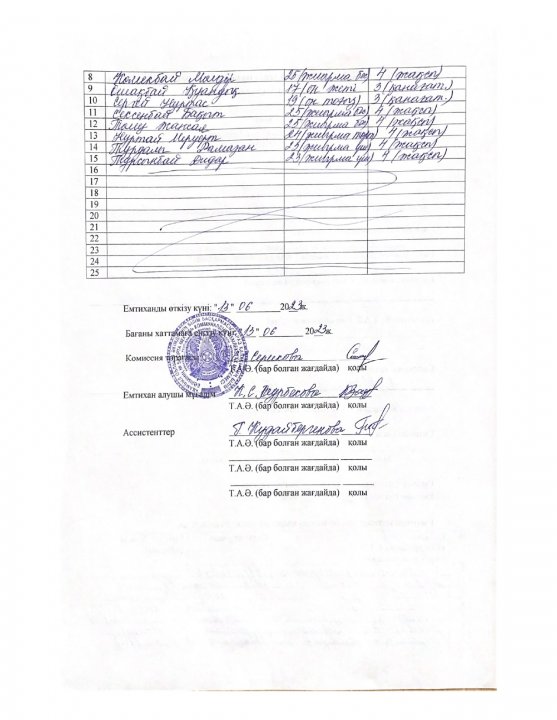 8 Көмекбай Мадияр 25 (жиырма бес) 4 (жақсы)
9 Смақтай Қуандық 17 (он жеті) 3 (қанағат.)
10 Серғазы Нұрғас 19 (он тоғыз) 3 (қанағат.)
11 Сессенбай Бақыт 25 (жиырма бес) 4 (жақсы)
12 Жансая 25 (жиырма бес) 4 (жақсы)
13 Нұртай 24 (жиырма төрт) 4 (жақсы)
14 Тұрдалы Рамазан 23 (жиырма үш) 4 (жақсы)
15 Тұрсынбай Дидар 23 (жиырма үш) 4 (жақсы)
16
17
18
19
20
21
22
23
24
25
Емтиханды өткізу күні: "13" 06 2023ж.
Бағаны хаттамаға енгізу күні: "13" 06 2023ж.
Комиссия төрағасы Серикова
Т.А.Ә. (бар болған жағдайда) қолы
Емтихан алушы мұғалім Н. С. Нурбекова
Т.А.Ә. (бар болған жағдайда) қолы
Ассистенттер Г Кудайбергенова
Т.А.Ә. (бар болған жағдайда) қолы
Т.А.Ә. (бар болған жағдайда) қолы
Т.А.Ә. (бар болған жағдайда) қолы